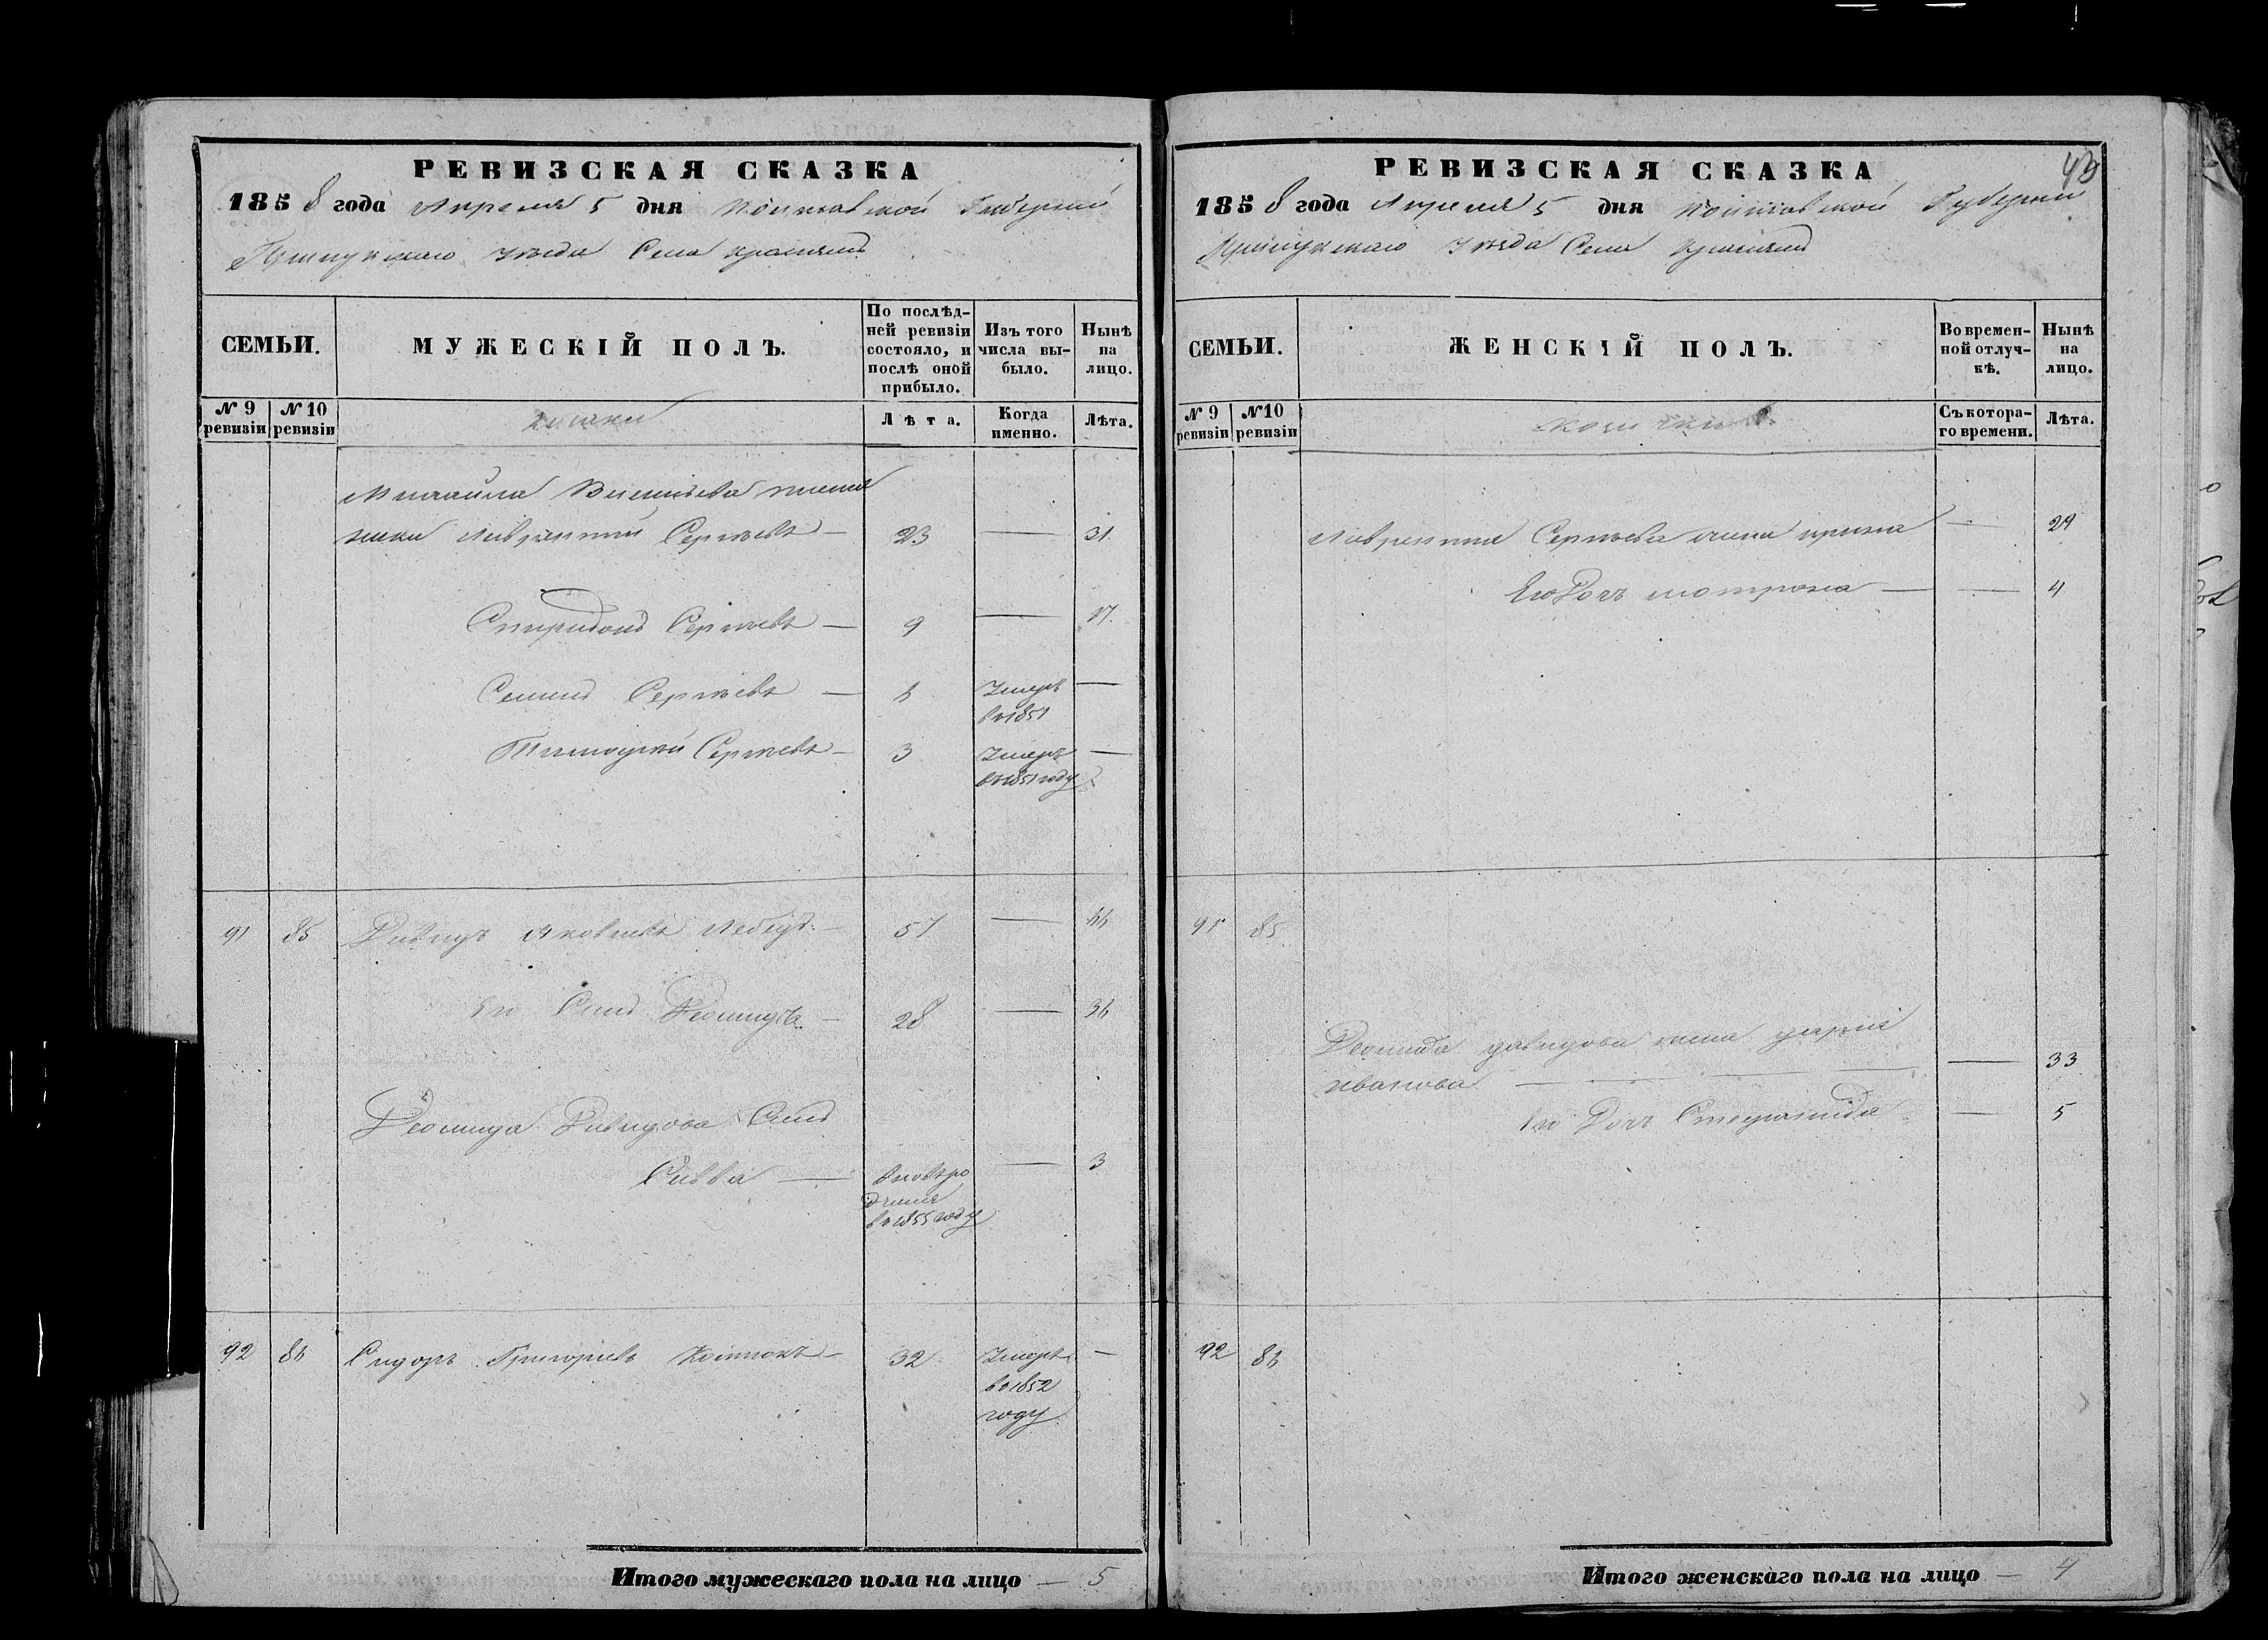 РЕВИЗСКАЯ СКАЗКА
1858 года Апреля 5 дня Полтавской Губернии
Прилукскаго уѣзда Села
СЕМЬИ.
МУЖЕСКІЙ ПОЛЪ.
По послѣд-
ней ревизіи
состояло, и
послѣ оной
прибыло.
Изъ того
числа вы-
было.
Нынѣ
на
лицо.
№ 9
ревизіи
№ 10
ревизіи
Лѣта.
Когда
именно.
Лѣта.
Михайла
Лаврентій Сергѣевъ — 23 — 31.
Спиридонъ Сергѣевъ — 9 — 17.
Семенъ Сергѣевъ — 6 Умеръ —
въ 1851
Тимоѳей Сергѣевъ — 3 Умеръ —
въ 1851 году
91 85 Давидъ Яковлевъ — 57 — 66
Его Сынъ Деомидъ — 28 — 36
Деомида Давидова Сынъ
Савва — вновь ро — 3
дился
въ 1855 году
92 86 Сидоръ Григорьевъ 32 Умеръ —
въ 1852
году
Итого мужескаго пола на лицо — 5
43
РЕВИЗСКАЯ СКАЗКА
1858 года Апреля 5 дня Полтавской Губернии
Прилукскаго уѣзда Села
СЕМЬИ.
ЖЕНСКІЙ ПОЛЪ.
Во времен-
ной отлуч-
кѣ.
Нынѣ
на
лицо.
№ 9
ревизіи
№ 10
ревизіи
Съ котора-
го времени.
Лѣта.
Лаврентия Сергѣева жена — 29
Его Дочь Мотрона — — 4
91 85
Деомида Давидова жена Дарія
Иванова — — 33
Его Дочь Степанида — 5
92 86
Итого женскаго пола на лицо — 4